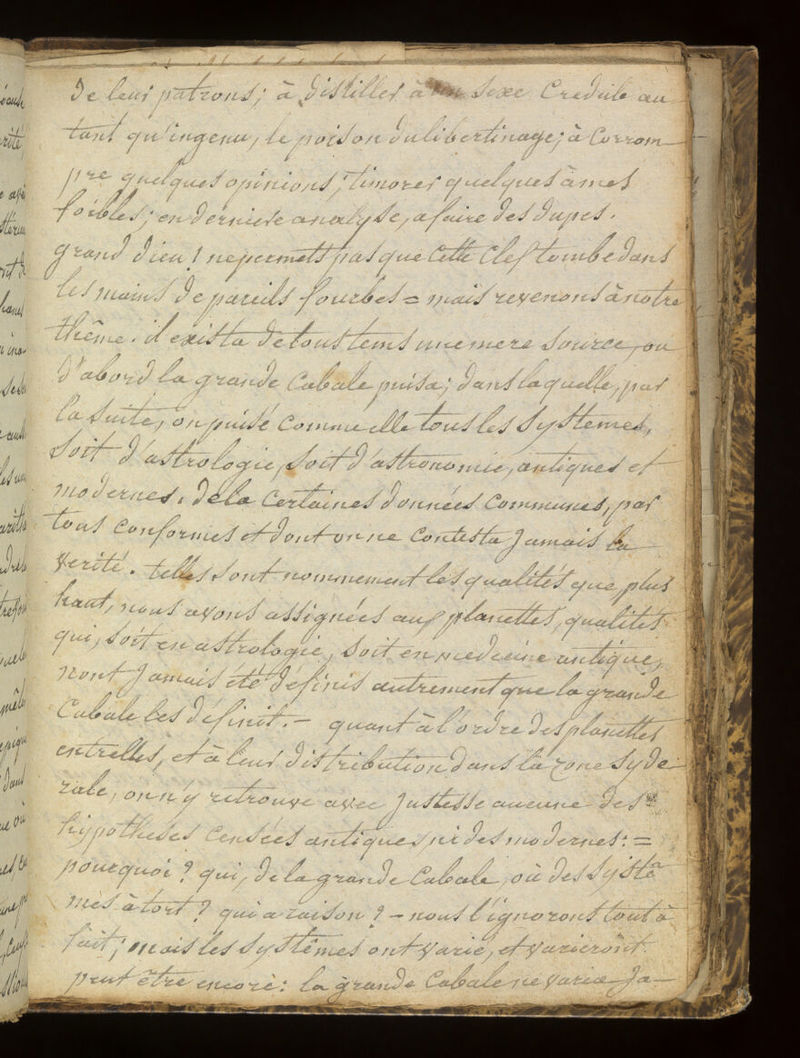 de leurs patrons; à distiller à un sexe Credule au
tant qu'ingenu, le poison du libertinage; à Corrom
pre quelques opinions, timorer quelques âmes
foibles; en derniere analyse, a faire des dupes.
grand dieu! ne permets pas que Cette Clef tombe dans
les mains de pareils fourbes = mais revenons à notre
thême. il exista de tous tems une mere source, ou
d'abord la grande Cabale puisa; dans laquelle, par
la suite, on puisé Comme elle tous les Systemes,
soit d'astrologie, soit d'astronomie, antiques et
modernes. dela Certaines données Communes, par
tous Conformes et dont on ne Contesta Jamais la
verité. telles sont nommement les qualités que plus
haut, nous avons assignées aux planettes, qualités
qui, soit en astrologie, soit en medecine antique,
nont Jamais été définis autrement que la grande
Cabale les définit. - quant à l'ordre des planettes
entrelles, et à leur distribution dans la zone syde
rale, on n'y retrouve avec Justesse aucune des
hypotheses Censées antiques, ni des modernes: =
pourquoi? qui, de la grande Cabale, où des systê
mes à tort? qui a raison? - nous l'ignorons tout à
fait; mais les Systêmes ont varié, et varieront
peut être encore: la grande Cabale ne varia Ja-